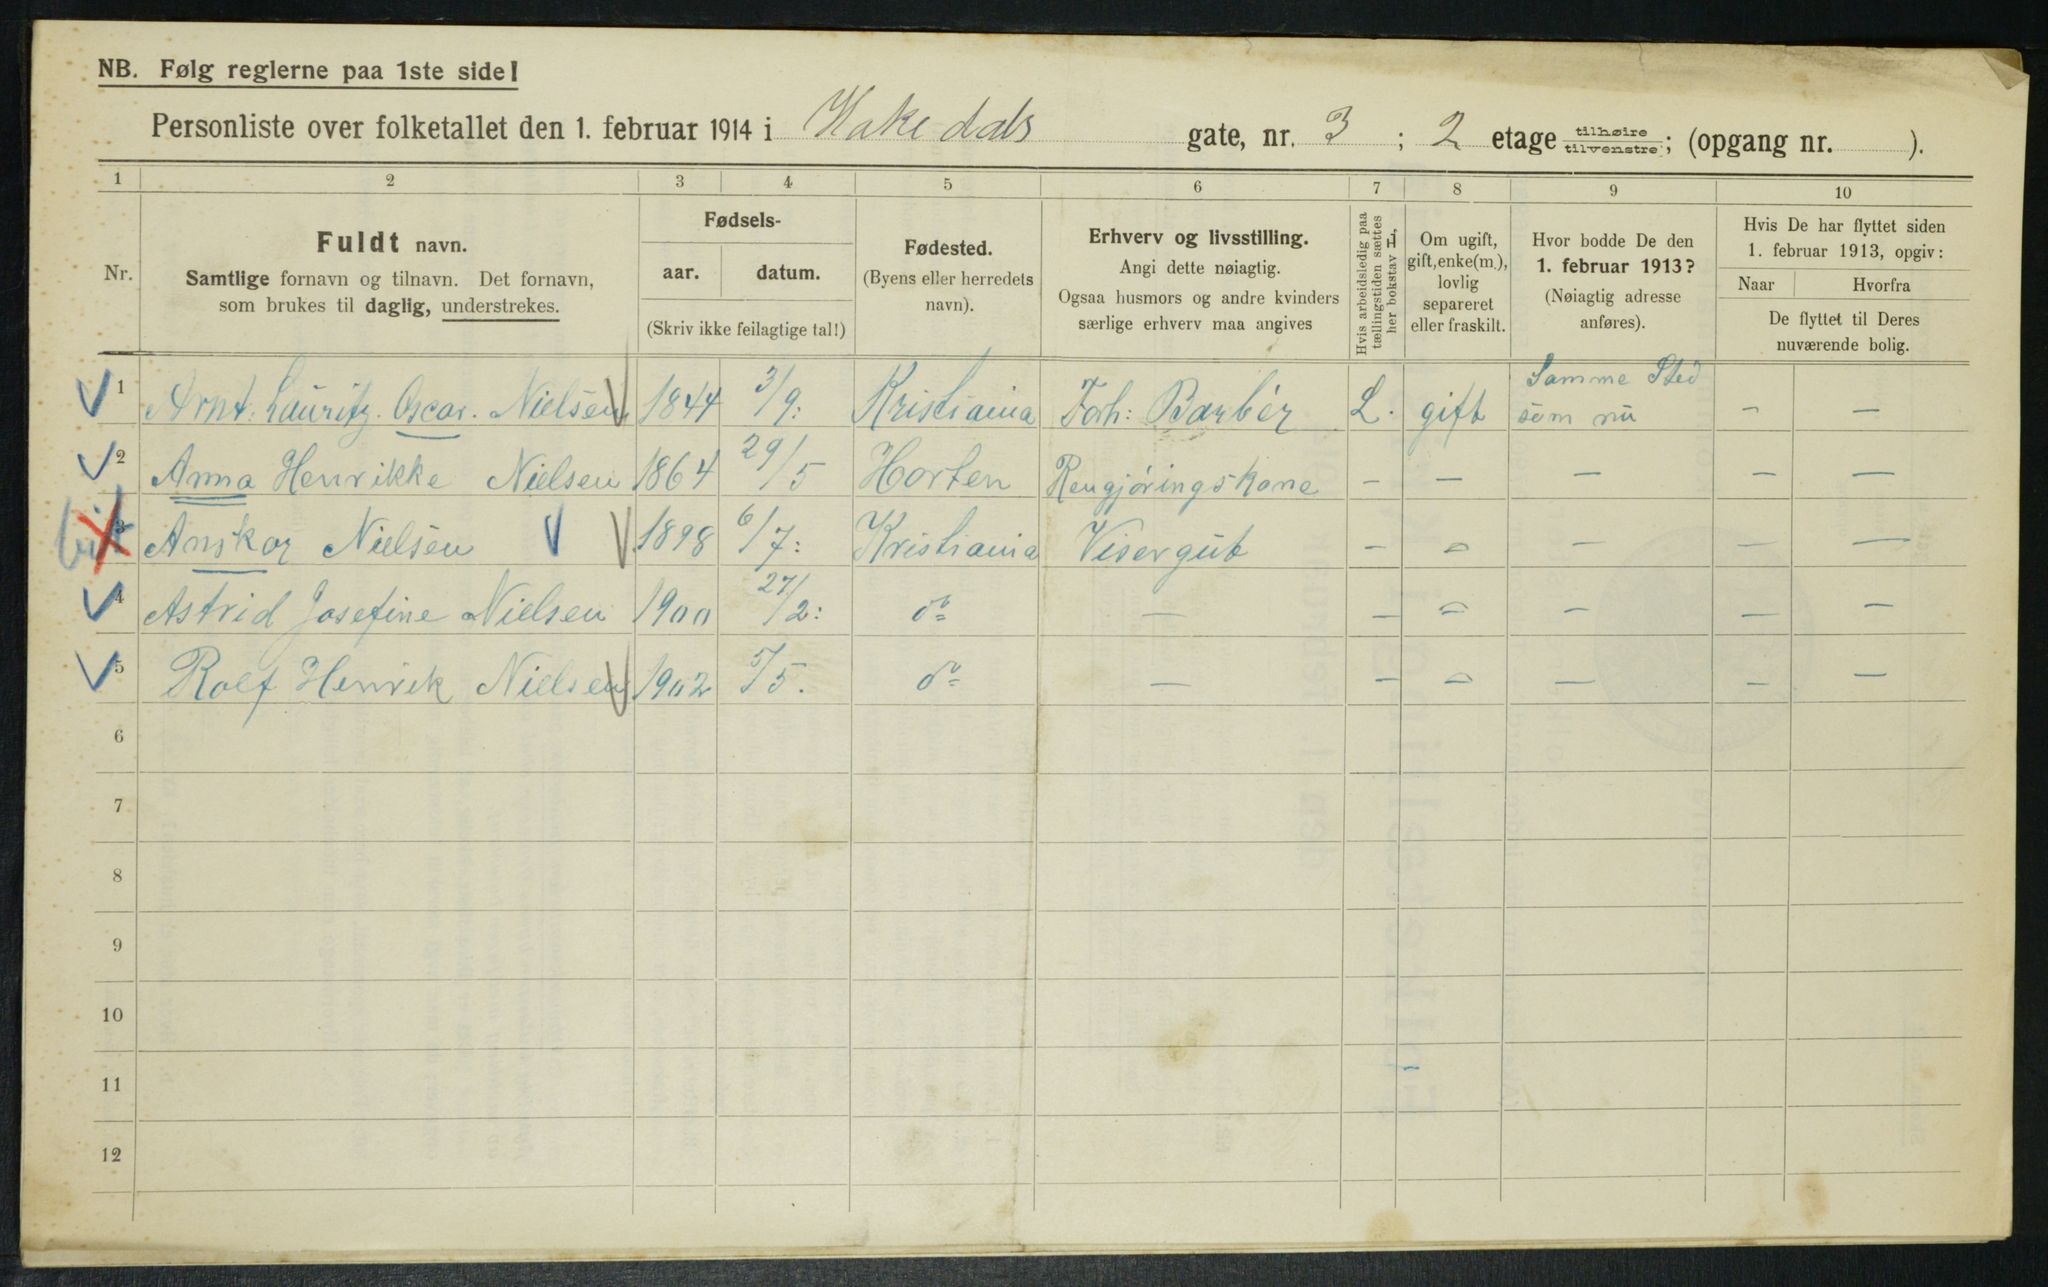 NB. Følg reglerne paa 1ste side!
Personliste over folketallet den 1. februar 1914 i Hakedals gate, nr. 3 ; 2 etage tilhøire tilvenstre; (opgang nr. ).
1 2 3 4 5 6 7 8 9 10
Nr.
Fuldt navn.
Samtlige fornavn og tilnavn. Det fornavn,
som brukes til daglig, understrekes.
Fødsels-
aar. datum.
(Skriv ikke feilagtige tal!)
Fødested.
(Byens eller herredets
navn).
Erhverv og livsstilling.
Angi dette nøiagtig.
Ogsaa husmors og andre kvinders
særlige erhverv maa angives
Hvis arbeidsledig paa
tællingstiden sættes
her bokstav L.
Om ugift,
gift, enke(m.),
lovlig
separeret
eller fraskilt.
Hvor bodde De den
1. februar 1913?
(Nøiagtig adresse
anføres).
Hvis De har flyttet siden
1. februar 1913, opgiv:
Naar Hvorfra
De flyttet til Deres
nuværende bolig.
1 Arnt. Lauritz. Oscar. Nielsen 1844 3/9: Kristiania Forh: Barbér L. gift Samme Sted som nu — —
2 Anna Henrikke Nielsen 1864 29/5 Horten Rengjøringskone — — — — —
3 Anskar Nielsen 1898 6/7: Kristiania Visergut — — — — —
4 Astrid Josefine Nielsen 1900 27/2: do — — — — — —
5 Rolf Henrik Nielsen 1902 5/5. do — — — — — —
6
7
8
9
10
11
12